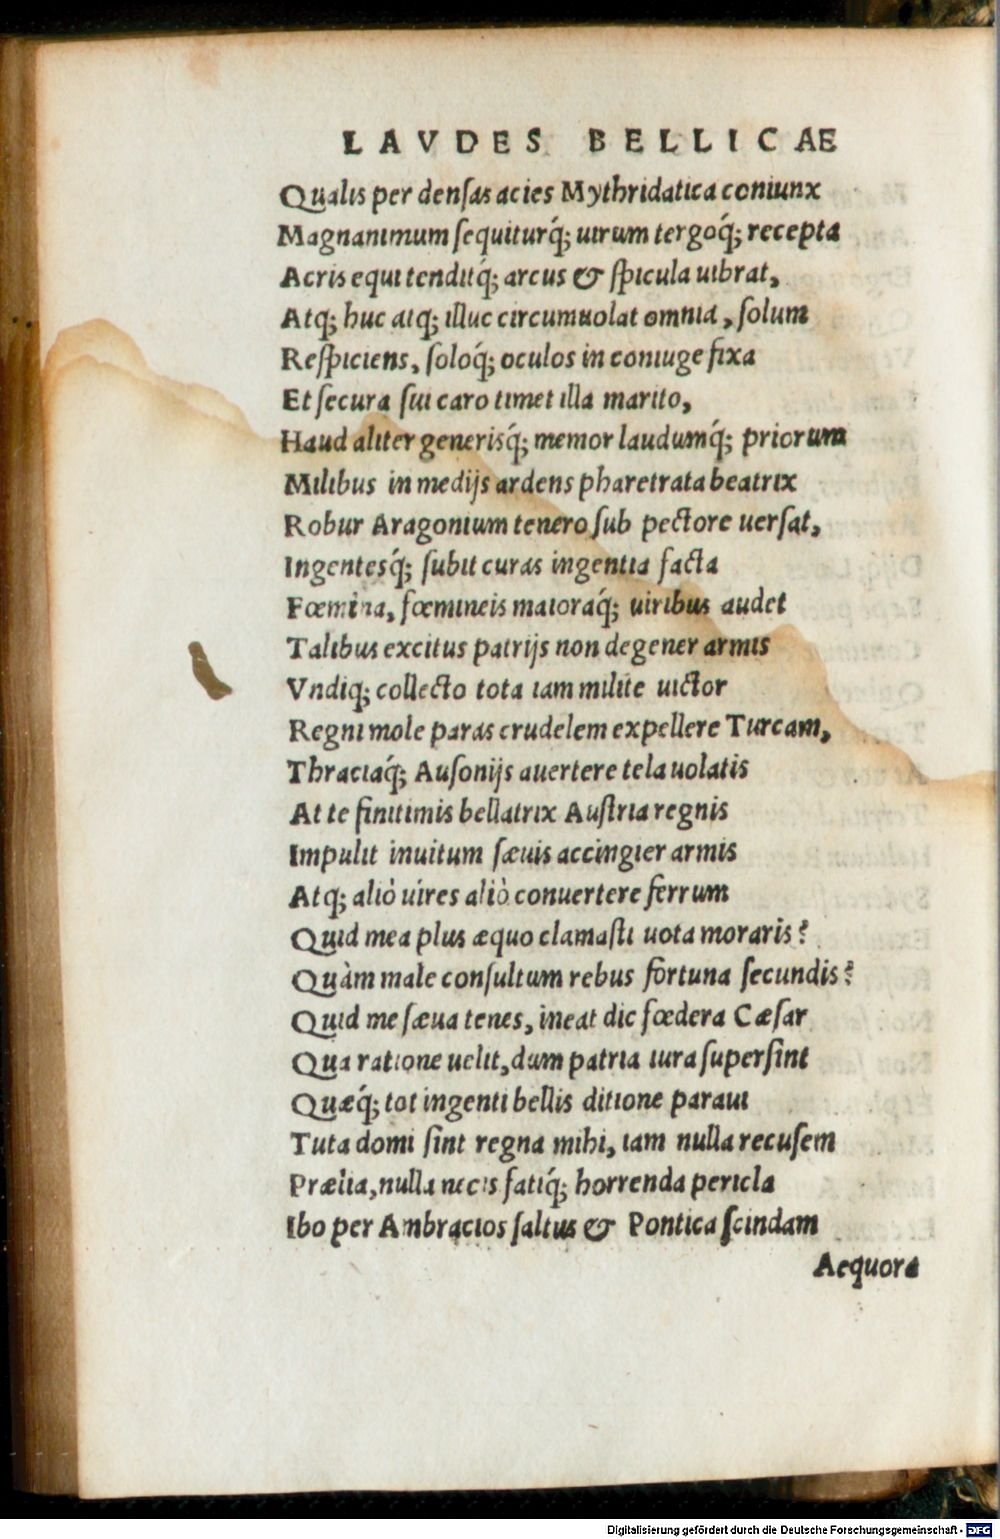 LAVDES BELLICAE
Qualis per denſas acies Mythridatica coniunx
Magnanimum ſequiturq́; uirum tergoq́; recepta
Acris equi tenditq́; arcus & ſpicula uibrat,
Atq; huc atq; illuc circumuolat omnia, ſolum
Reſpiciens, ſoloq́; oculos in coniuge fixa
Et ſecura ſui caro timet illa marito,
Haud aliter generisq́; memor laudumq́; priorum
Milibus in medijs ardens pharetrata beatrix
Robur Aragonium tenero ſub pectore uerſat,
Ingentesq́; ſubit curas ingentia facta
Fœmina, fœmineis maioraq́; uiribus audet
Talibus excitus patrijs non degener armis
Vndiq; collecto tota iam milite uictor
Regni mole paras crudelem expellere Turcam,
Thraciaq́; Auſonijs auertere tela uolatis
At te finitimis bellatrix Auſtria regnis
Impulit inuitum ſæuis accingier armis
Atq; aliò uires aliò conuertere ferrum
Quid mea plus æquo clamaſti uota moraris?
Quàm male conſultum rebus fortuna ſecundis?
Quid me ſæua tenes, ineat dic fœdera Cæſar
Qua ratione uelit, dum patria iura ſuperſint
Quæq́; tot ingenti bellis ditione paraui
Tuta domi ſint regna mihi, iam nulla recuſem
Prælia, nulla necis fatiq́; horrenda pericla
Ibo per Ambracios ſaltus & Pontica ſcindam
Aequora
Digitalisierung gefördert durch die Deutsche Forschungsgemeinschaft - DFG